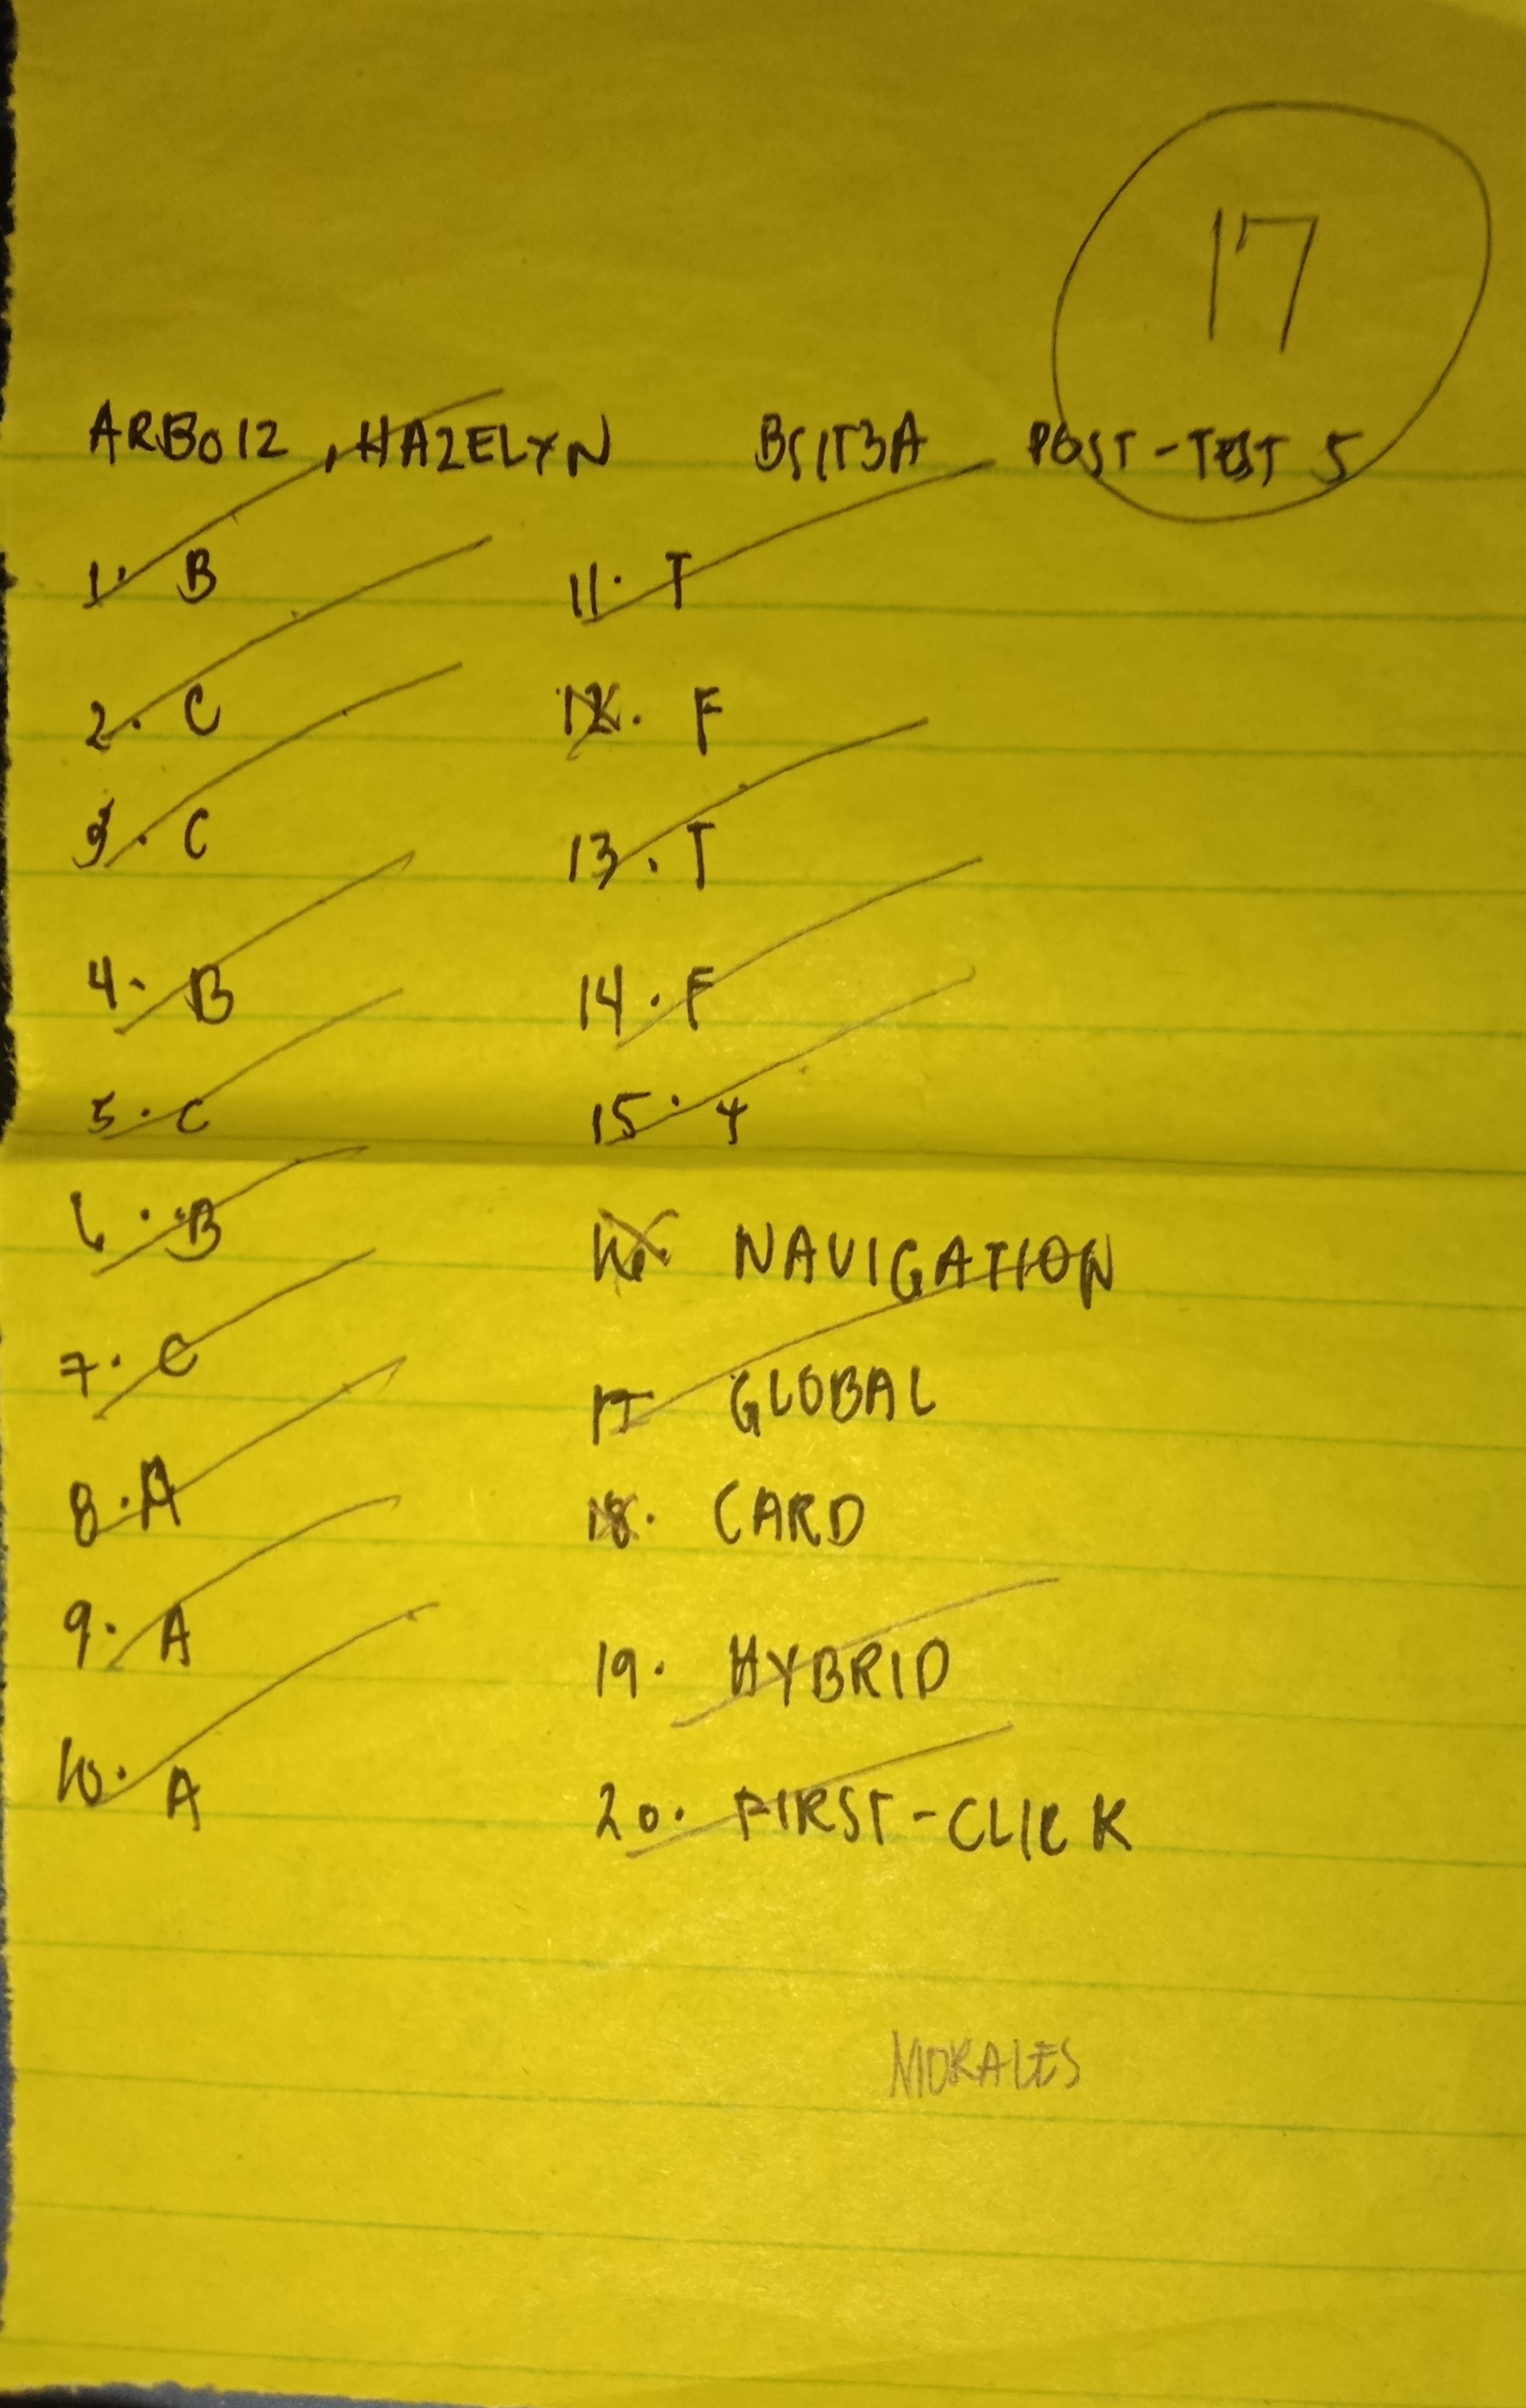 17
ARBO12, HAZELYN BSIT3A POST-TEST 5
1. B
2. C
3. C
4. B
5. C
6. B
7. C
8. A
9. A
10. A
11. T
12. F
13. T
14. F
15.
16. NAVIGATION
17 GLOBAL
18. CARD
19. HYBRID
20. FIRST-CLICK
MORALES